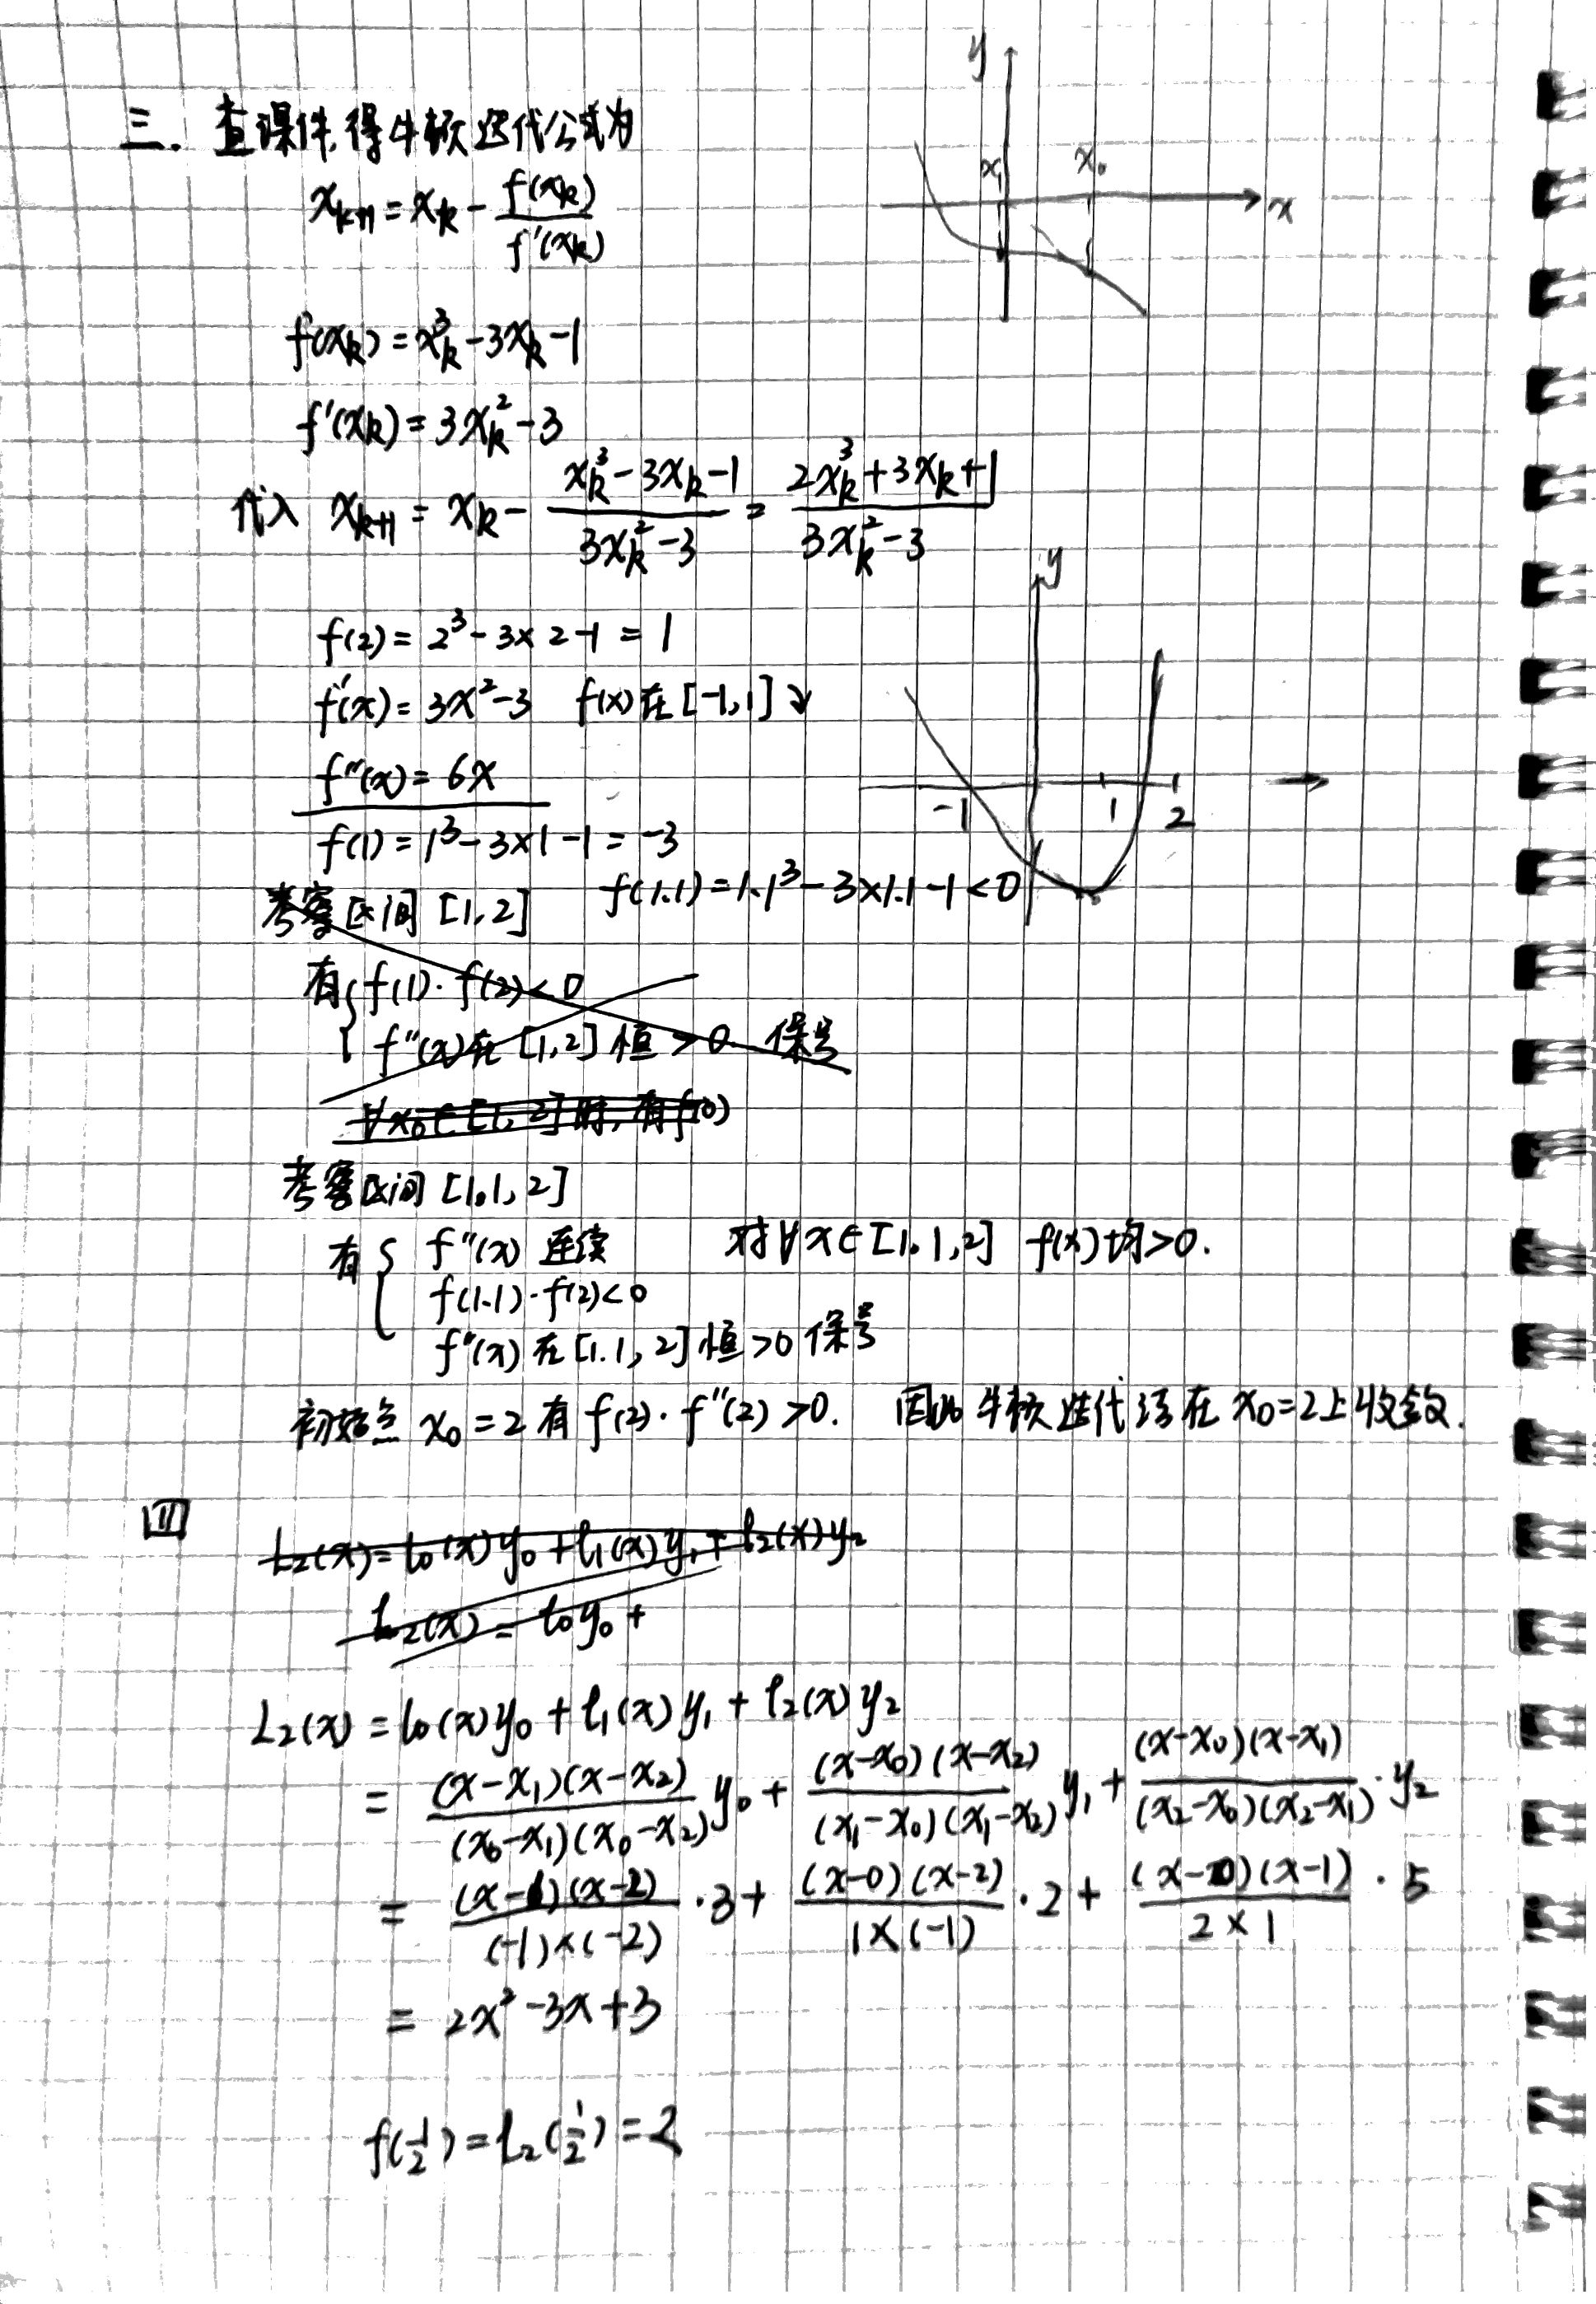 三. 查课件,得牛顿迭代公式为
x_{k+1} = x_k - \frac{f(x_k)}{f'(x_k)}
y x_1 x_0 x
f(x_k) = x_k^3 - 3x_k - 1
f'(x_k) = 3x_k^2 - 3
代入 x_{k+1} = x_k - \frac{x_k^3 - 3x_k - 1}{3x_k^2 - 3} = \frac{2x_k^3 + 3x_k + 1}{3x_k^2 - 3}
f(2) = 2^3 - 3×2 - 1 = 1
f'(x) = 3x^2 - 3 f(x)在[-1,1]↘
f''(x) = 6x
y -1 1 2
f(1) = 1^3 - 3×1 - 1 = -3
f(1.1) = 1.1^3 - 3×1.1 - 1 < 0
考察区间 [1,2]
有{ f(1)·f(2) < 0
f''(x)在 [1,2] 恒 > 0 保号
∀x_0∈[1,2]时,有f(0)
考察区间 [1.1, 2]
有{ f''(x) 连续 对∀x∈[1.1,2] f(x)均>0.
f(1.1)·f(2)<0
f''(x) 在[1.1, 2]恒>0 保号
初始点 x_0 = 2 有 f(2)·f''(2) > 0. 因此牛顿迭代法在 x_0=2上收敛.
四
L_2(x) = l_0(x)y_0 + l_1(x)y_1 + l_2(x)y_2
L_2(x) = l_0y_0 +
L_2(x) = l_0(x)y_0 + l_1(x)y_1 + l_2(x)y_2
= \frac{(x-x_1)(x-x_2)}{(x_0-x_1)(x_0-x_2)}y_0 + \frac{(x-x_0)(x-x_2)}{(x_1-x_0)(x_1-x_2)}y_1 + \frac{(x-x_0)(x-x_1)}{(x_2-x_0)(x_2-x_1)}·y_2
= \frac{(x-1)(x-2)}{(-1)×(-2)}·3 + \frac{(x-0)(x-2)}{1×(-1)}·2 + \frac{(x-0)(x-1)}{2×1}·5
= 2x^2 - 3x + 3
f(\frac{1}{2}) = L_2(\frac{1}{2}) = 2